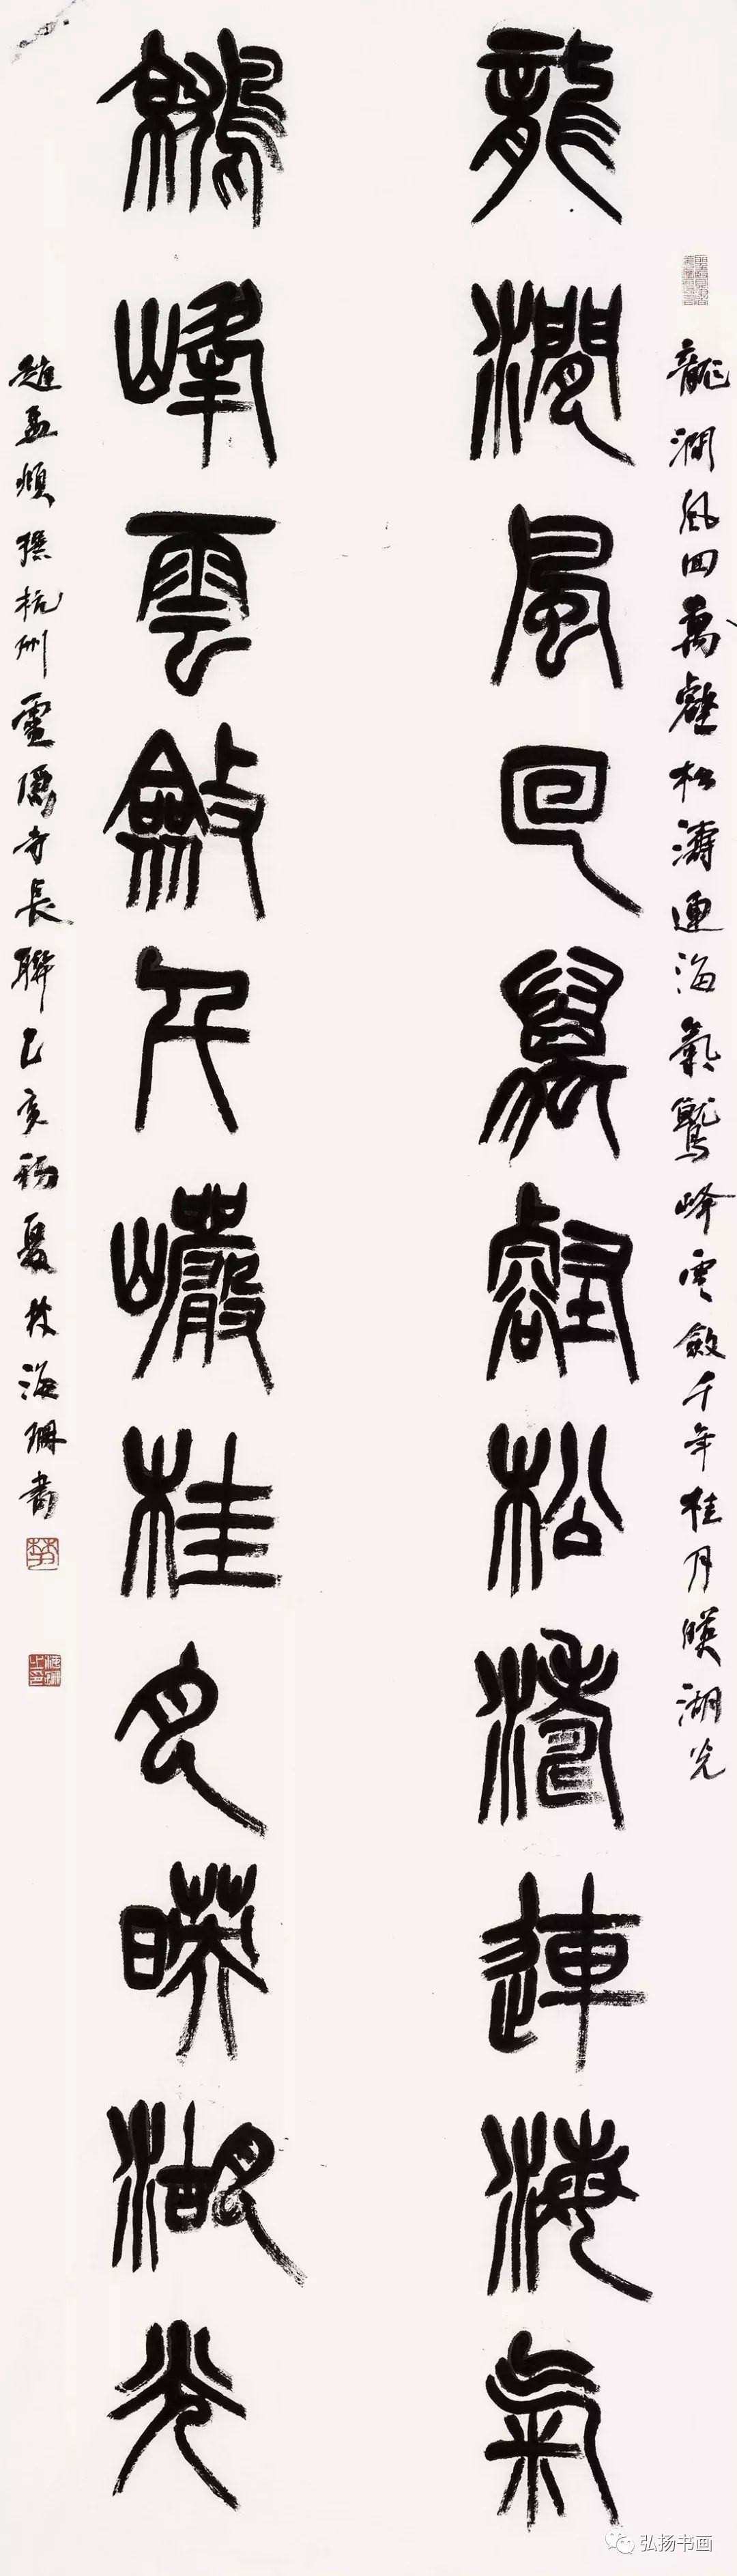 龍澗風回萬壑松濤連海氣鷲峰雲斂千年桂月暎湖光
龍澗風回萬壑松濤連海氣
鷲峰雲斂千巖桂月暎湖光
趙孟頫撰杭州靈隱寺長聯己亥初夏林海珊書
弘扬书画